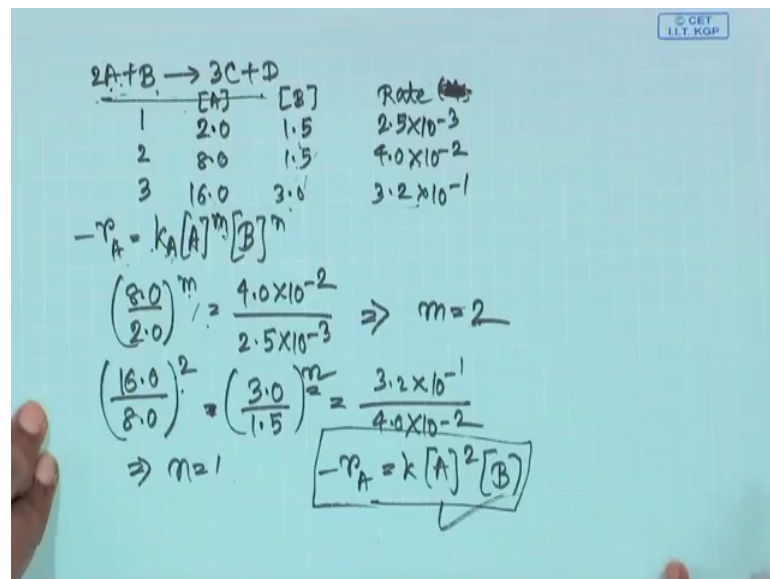 © CET
I.I.T. KGP
2A+B → 3C+D
[A] [B] Rate
1 2.0 1.5 2.5×10⁻³
2 8.0 1.5 4.0×10⁻²
3 16.0 3.0 3.2×10⁻¹
-r_A = k_A[A]^m[B]^n
(8.0/2.0)^m = 4.0×10⁻²/2.5×10⁻³ ⇒ m=2
(16.0/8.0)² · (3.0/1.5)^n = 3.2×10⁻¹/4.0×10⁻²
⇒ n=1 -r_A = k[A]²[B]